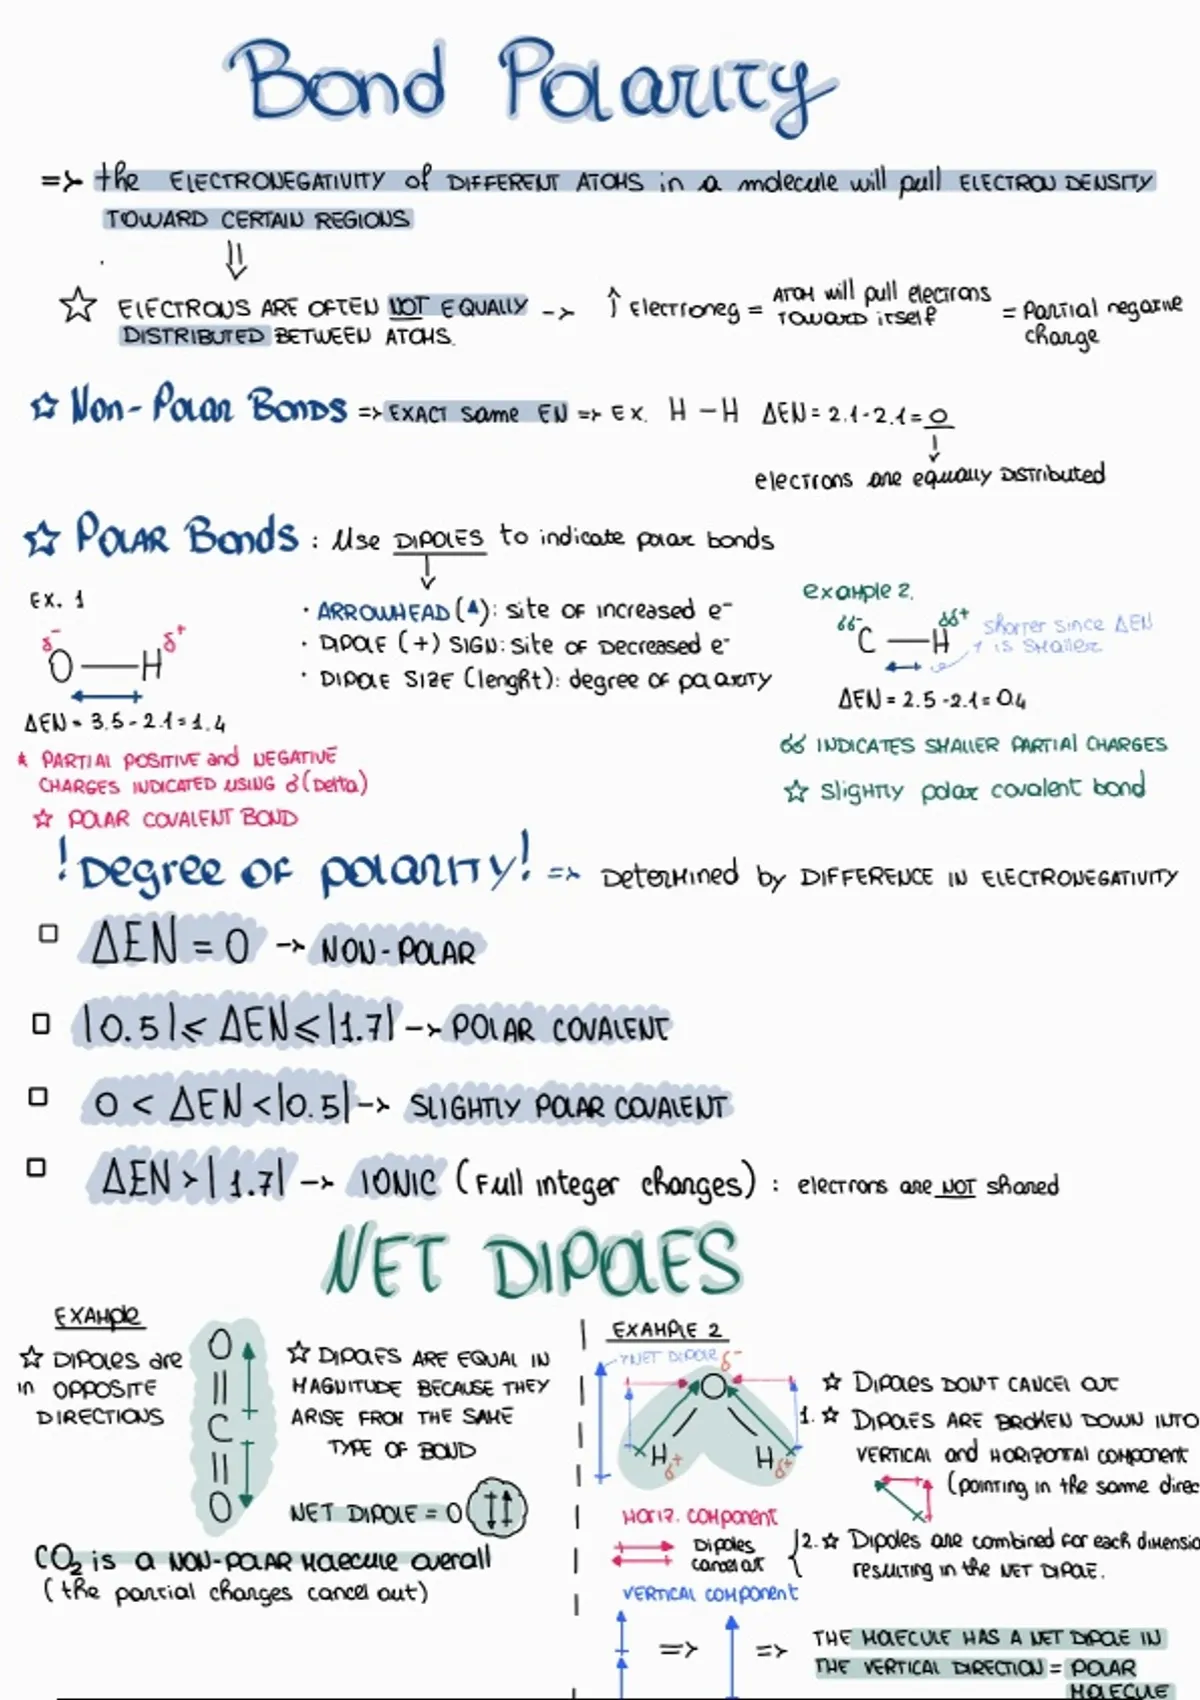 Bond Polarity
=> the ELECTRONEGATIVITY of DIFFERENT ATOMS in a molecule will pull ELECTRON DENSITY
TOWARD CERTAIN REGIONS
⇓
☆ ELECTRONS ARE OFTEN NOT EQUALLY -> ↑ Electroneg = ATOM will pull electrons TOWARD itself = Partial negative charge
DISTRIBUTED BETWEEN ATOMS.
☆ Non-Polar Bonds => EXACT same EN => EX. H - H ΔEN = 2.1-2.1 = 0
↓
electrons are equally DISTributed
☆ POLAR Bonds : Use DIPOLES to indicate polar bonds
↓
EX. 1
δ- δ+
O — H
ΔEN = 3.5-2.1=1.4
* PARTIAL POSITIVE and NEGATIVE
CHARGES INDICATED USING δ (Delta)
☆ POLAR COVALENT BOND
· ARROWHEAD (▲): site of increased e-
· DIPOLE (+) SIGN: site of Decreased e-
· DIPOLE SIZE (lenght): degree of polarity
example 2.
δδ- δδ+
C — H
shorter since ΔEN
is smaller
ΔEN = 2.5-2.1= 0.4
δδ INDICATES SMALLER PARTIAL CHARGES
☆ Slightly polar covalent bond
! Degree of polarity! => Determined by DIFFERENCE IN ELECTRONEGATIVITY
□ ΔEN = 0 -> NON-POLAR
□ |0.5| ≤ ΔEN ≤ |1.7| -> POLAR COVALENT
□ 0 < ΔEN < |0.5| -> SLIGHTLY POLAR COVALENT
□ ΔEN > |1.7| -> IONIC (Full integer charges) : electrons are NOT shared
NET DIPOLES
EXAMPLE
☆ DIPOLES are
in OPPOSITE
DIRECTIONS
O
||
C
||
O
☆ DIPOLES ARE EQUAL IN
MAGNITUDE BECAUSE THEY
ARISE FROM THE SAME
TYPE OF BOND
NET DIPOLE = 0
CO2 is a NON-POLAR MOLECULE overall
(the partial charges cancel out)
EXAMPLE 2
NET DIPOLE δ-
O
H δ+ H δ+
HORIZ. COMPONENT
Dipoles
cancel out
VERTICAL COMPONENT
=> =>
☆ DIPOLES DON'T CANCEL OUT
1. ☆ DIPOLES ARE BROKEN DOWN INTO
VERTICAL and HORIZONTAL COMPONENT
(pointing in the same direc
2. ☆ Dipoles are combined for each dimensio
resulting in the NET DIPOLE.
THE MOLECULE HAS A NET DIPOLE IN
THE VERTICAL DIRECTION = POLAR
MOLECULE